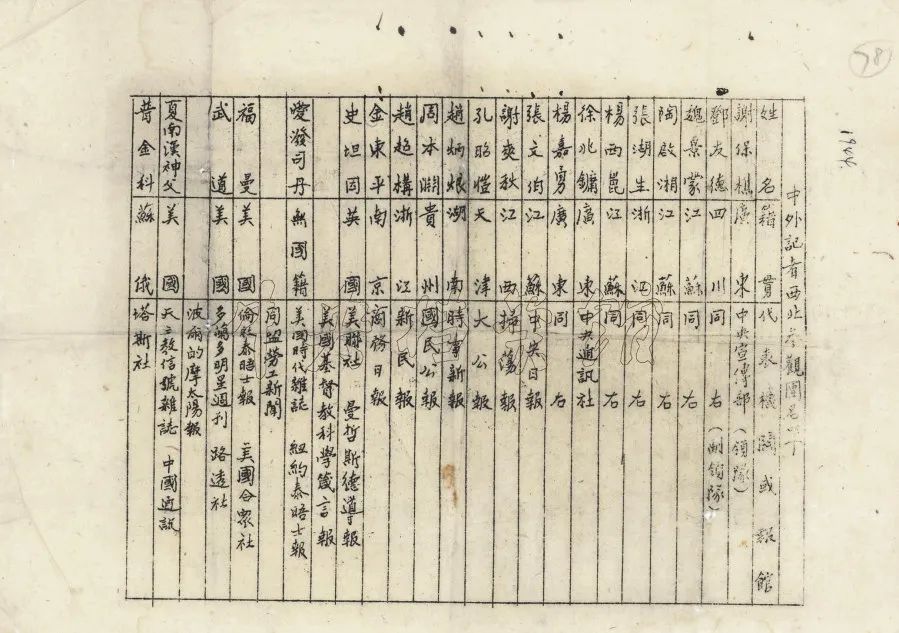 78
1944
中外記者西北參觀團名單
姓名 籍貫 代表機關或報館
謝保樵 廣東 中央宣傳部（領隊）
鄧友德 四川 同右（副領隊）
魏景蒙 江蘇 同右
陶啟湘 江蘇 同右
張湖生 浙江 同右
楊西崑 江蘇 同右
徐兆鏞 廣東 中央通訊社
楊嘉勇 廣東 同右
張文伯 江蘇 中央日報
謝爽秋 江西 掃蕩報
孔昭愷 天津 大公報
趙炳烺 湖南 時事新報
周本淵 貴州 國民公報
趙超構 浙江 新民報
金東平 南京 商務日報
史坦因 英國 美聯社 曼哲斯德導報
美國基督教科學箴言報
愛潑司丹 無國籍 美國時代雜誌 紐約泰晤士報
同盟勞工新聞
福曼 美國 倫敦泰晤士報 美國合眾社
武道 美國 多倫多明星週刊 路透社
波爾的摩太陽報
夏南漢神父 美國 天主教信號雜誌 中國通訊
普金科 蘇俄 塔斯社